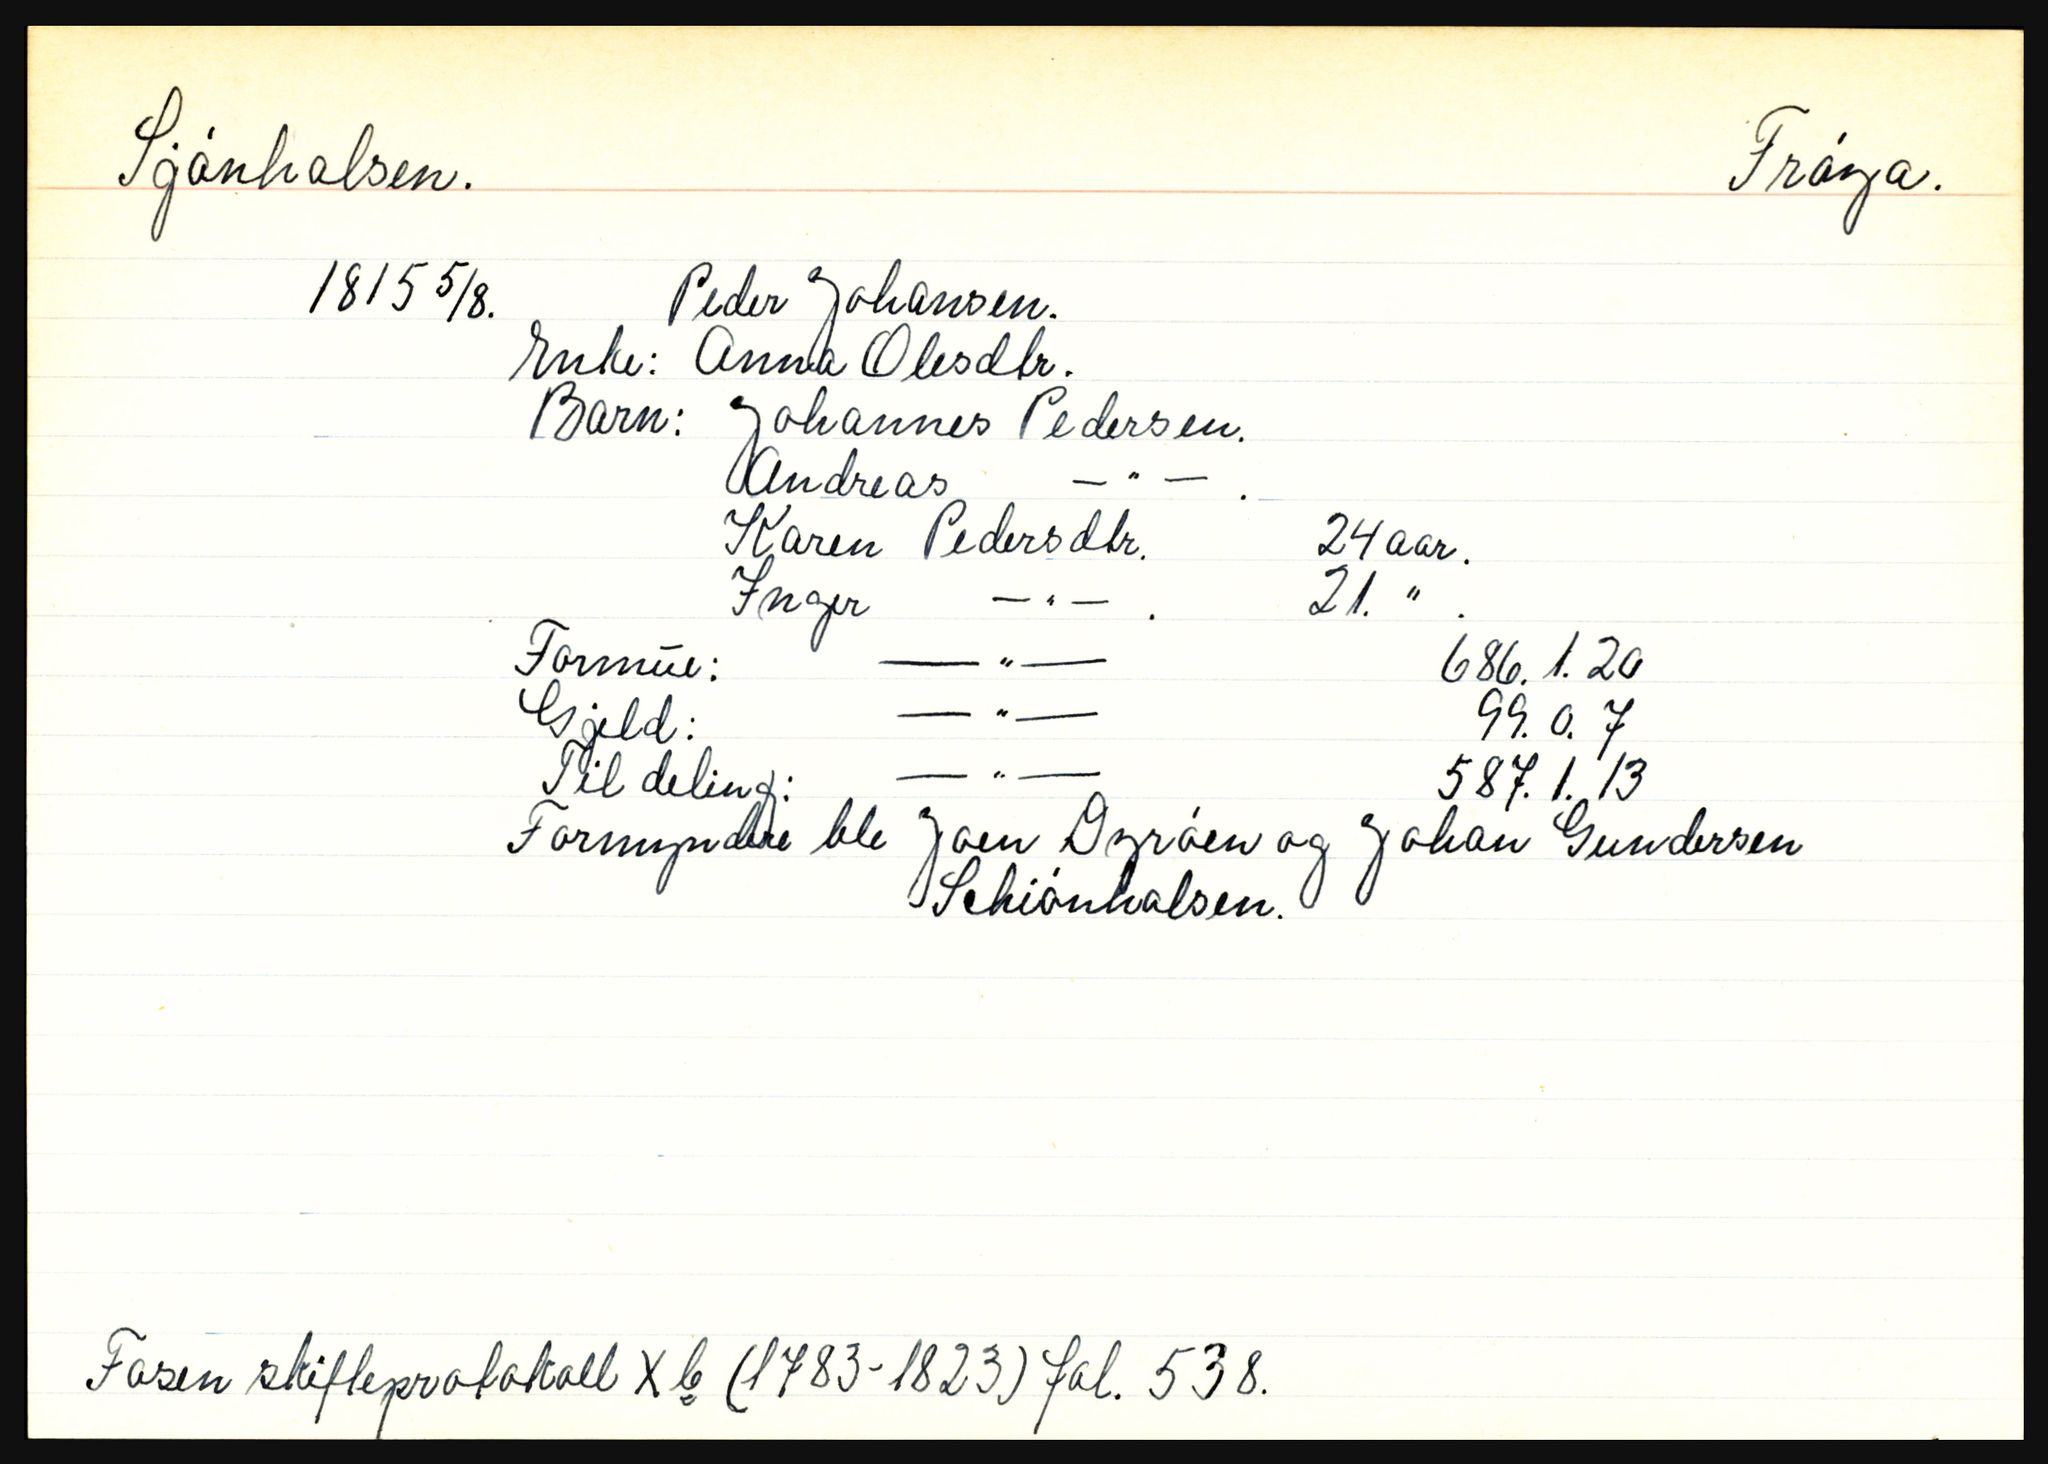 Sjónhalsen. Fróya.
1815 5/8. Peder Johansen.
Enke: Anna Olesdtr.
Barn: Johannes Pedersen.
Andreas — " — .
Karen Pedersdtr. 24 aar.
Inger — " — . 21. " .
Formue: — " — 686. 1. 20
Gjeld: — " — 99. 0. 7
Til deling: — " — 587. 1. 13
Formyndere ble Joen Dyróen og Johan Gundersen
Schiónhalsen.
Fosen skifteprotokoll X b (1783-1823) fol. 538.